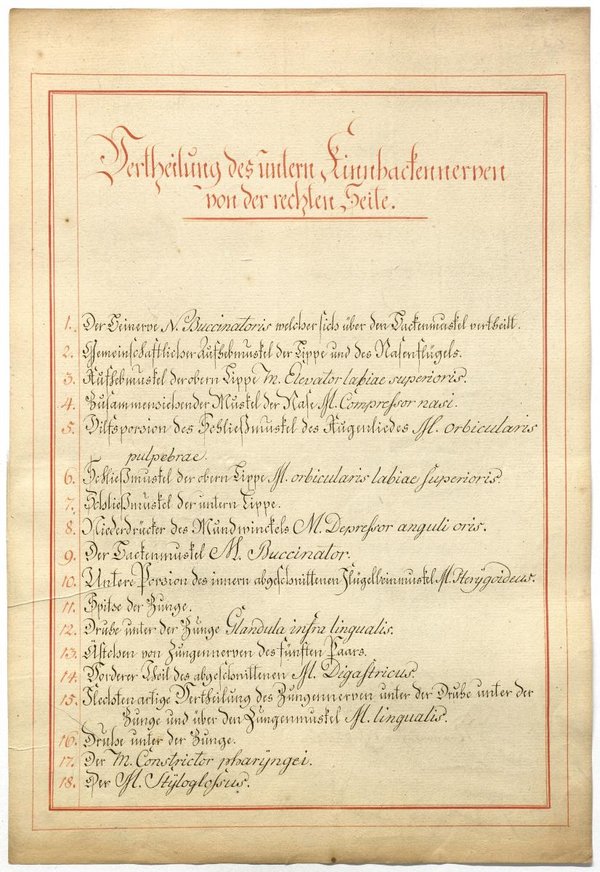 Vertheilung des untern Kinnbackennerven
von der rechten Seite.
1. Der Beinerve N. Buccinatoris welcher sich über den Backenmuskel vertheilt.
2. Gemeinschaftlicher Aufhebmuskel der Lippe und des Nasenflügels.
3. Aufhebmuskel der obern Lippe M. Elevator labiae superioris.
4. Zusammenziehender Muskel der Nase M. Compressor nasi.
5. Hilfsporsion des Schließmuskel des Augenliedes M. orbicularis
pulpebrae.
6. Schließmuskel der obern Lippe M. orbicularis labiae superioris.
7. Schließmuskel der untern Lippe.
8. Niederdrücker des Mundwinckels M. Depressor anguli oris.
9. Der Backenmuskel M. Buccinator.
10. Untere Porsion des innern abgeschnittenen Flügelbeinmuskel M. Pterygoideus.
11. Spitse der Zunge.
12. Druse unter der Zunge Glandula infra lingualis.
13. Ästchen von Zungennerven des fünften Paars.
14. Vorderer Theil des abgeschnittenen M. Digastricus.
15. Flechsten artige Vertheilung des Zungennerven unter der Druse unter der
Zunge und über den Zungenmuskel M. lingualis.
16. Druse unter der Zunge.
17. Der M. Constrictor pharÿngei.
18. Der M. Stÿloglossus.